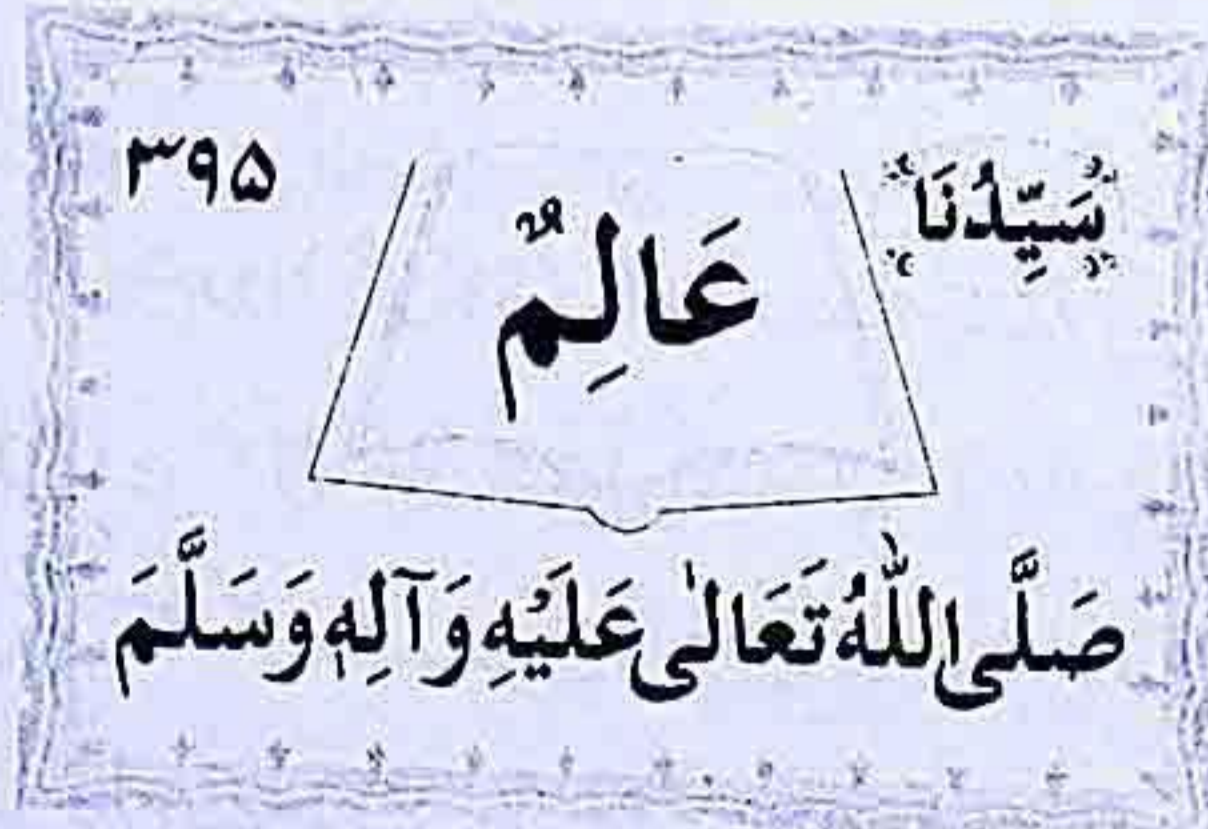 سَيِّدُنَا
عَالِمٌ
۳۹۵
صَلَّى اللّٰهُ تَعَالٰى عَلَيْهِ وَآلِهٖ وَسَلَّمَ